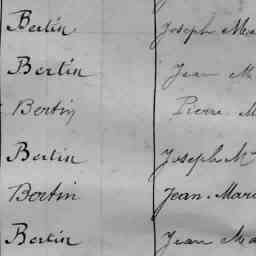 Bertin Joseph Ma
Bertin Jean M
Bertin Pierre M
Bertin Joseph M
Bertin Jean. Mari
Bertin Jean Ma